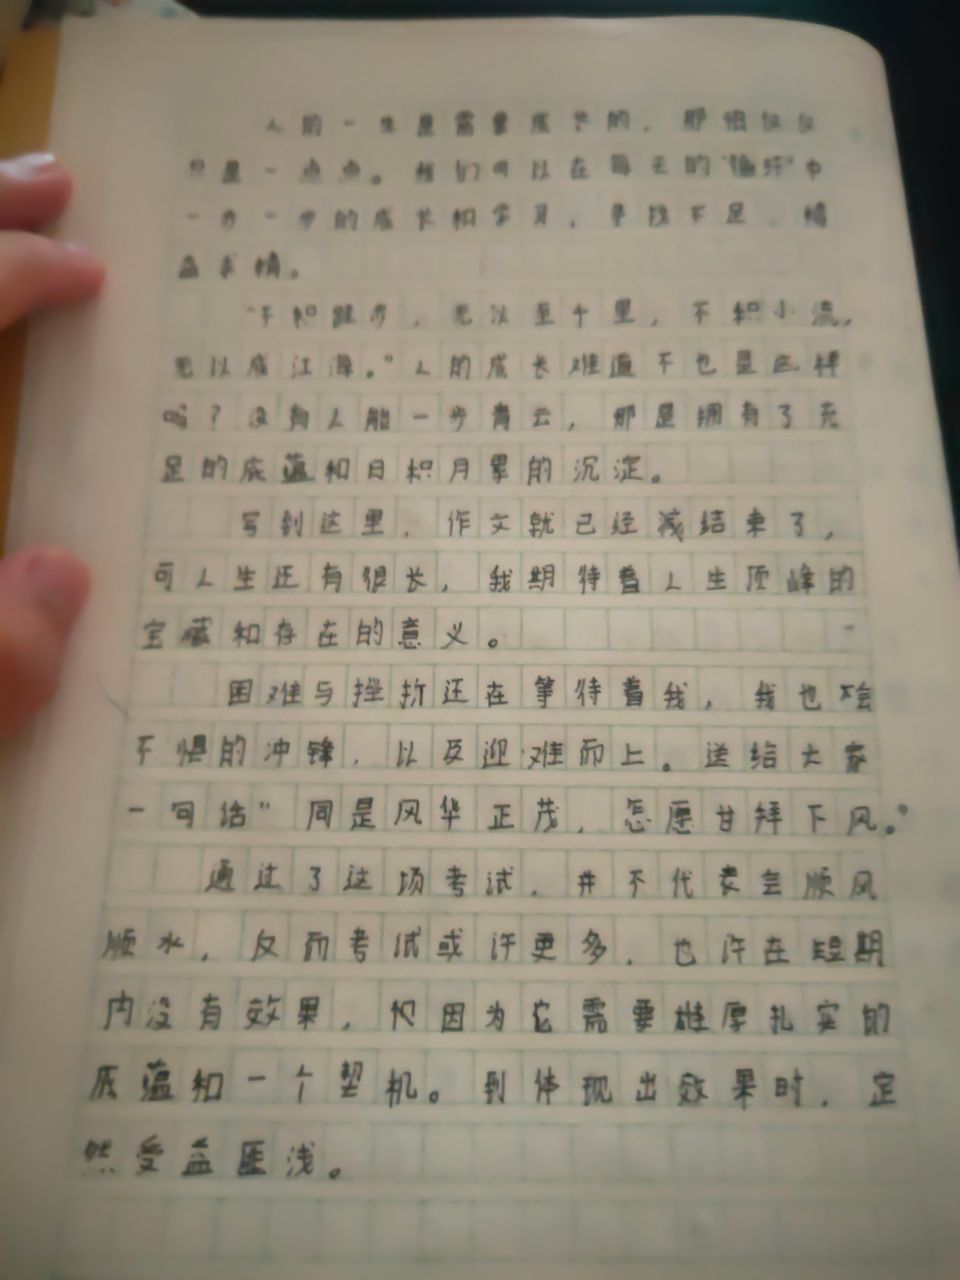 人的一生是需要成长的，那怕仅仅
只是一点点。我们可以在每天的"循环"中
一步一步的成长和学习，寻找不足，精
益求精。
"不积跬步，无以至千里，不积小流，
无以成江海。"人的成长难道不也是这样
吗？没有人能一步青云，那是拥有了充
足的底蕴和日积月累的沉淀。
写到这里，作文就已经减结束了，
可人生还有很长，我期待着人生顶峰的
宝藏和存在的意义。
困难与挫折还在等待着我，我也会
不惧的冲锋，以及迎难而上。送给大家
一句话"同是风华正茂，怎愿甘拜下风。"
通过了这项考试，并不代表会顺风
顺水，反而考试或许更多，也许在短期
内没有效果，但因为它需要雄厚扎实的
底蕴和一个契机。到体现出效果时，定
然受益匪浅。